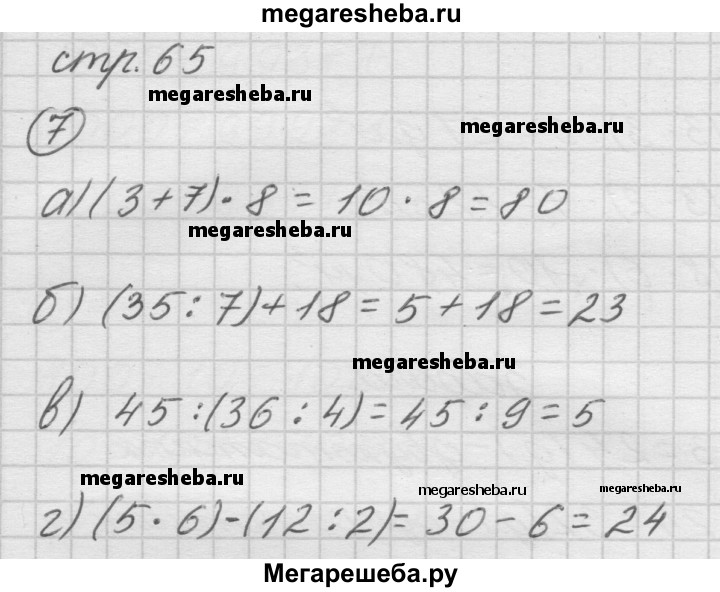 megaresheba.ru
стр. 65
megaresheba.ru
7
megaresheba.ru
а) (3+7)·8 = 10·8 = 80
megaresheba.ru
б) (35:7)+18 = 5+18 = 23
megaresheba.ru
в) 45:(36:4) = 45:9 = 5
megaresheba.ru
megaresheba.ru
megaresheba.ru
г) (5·6)-(12:2) = 30-6 = 24
Мегарешеба.ру